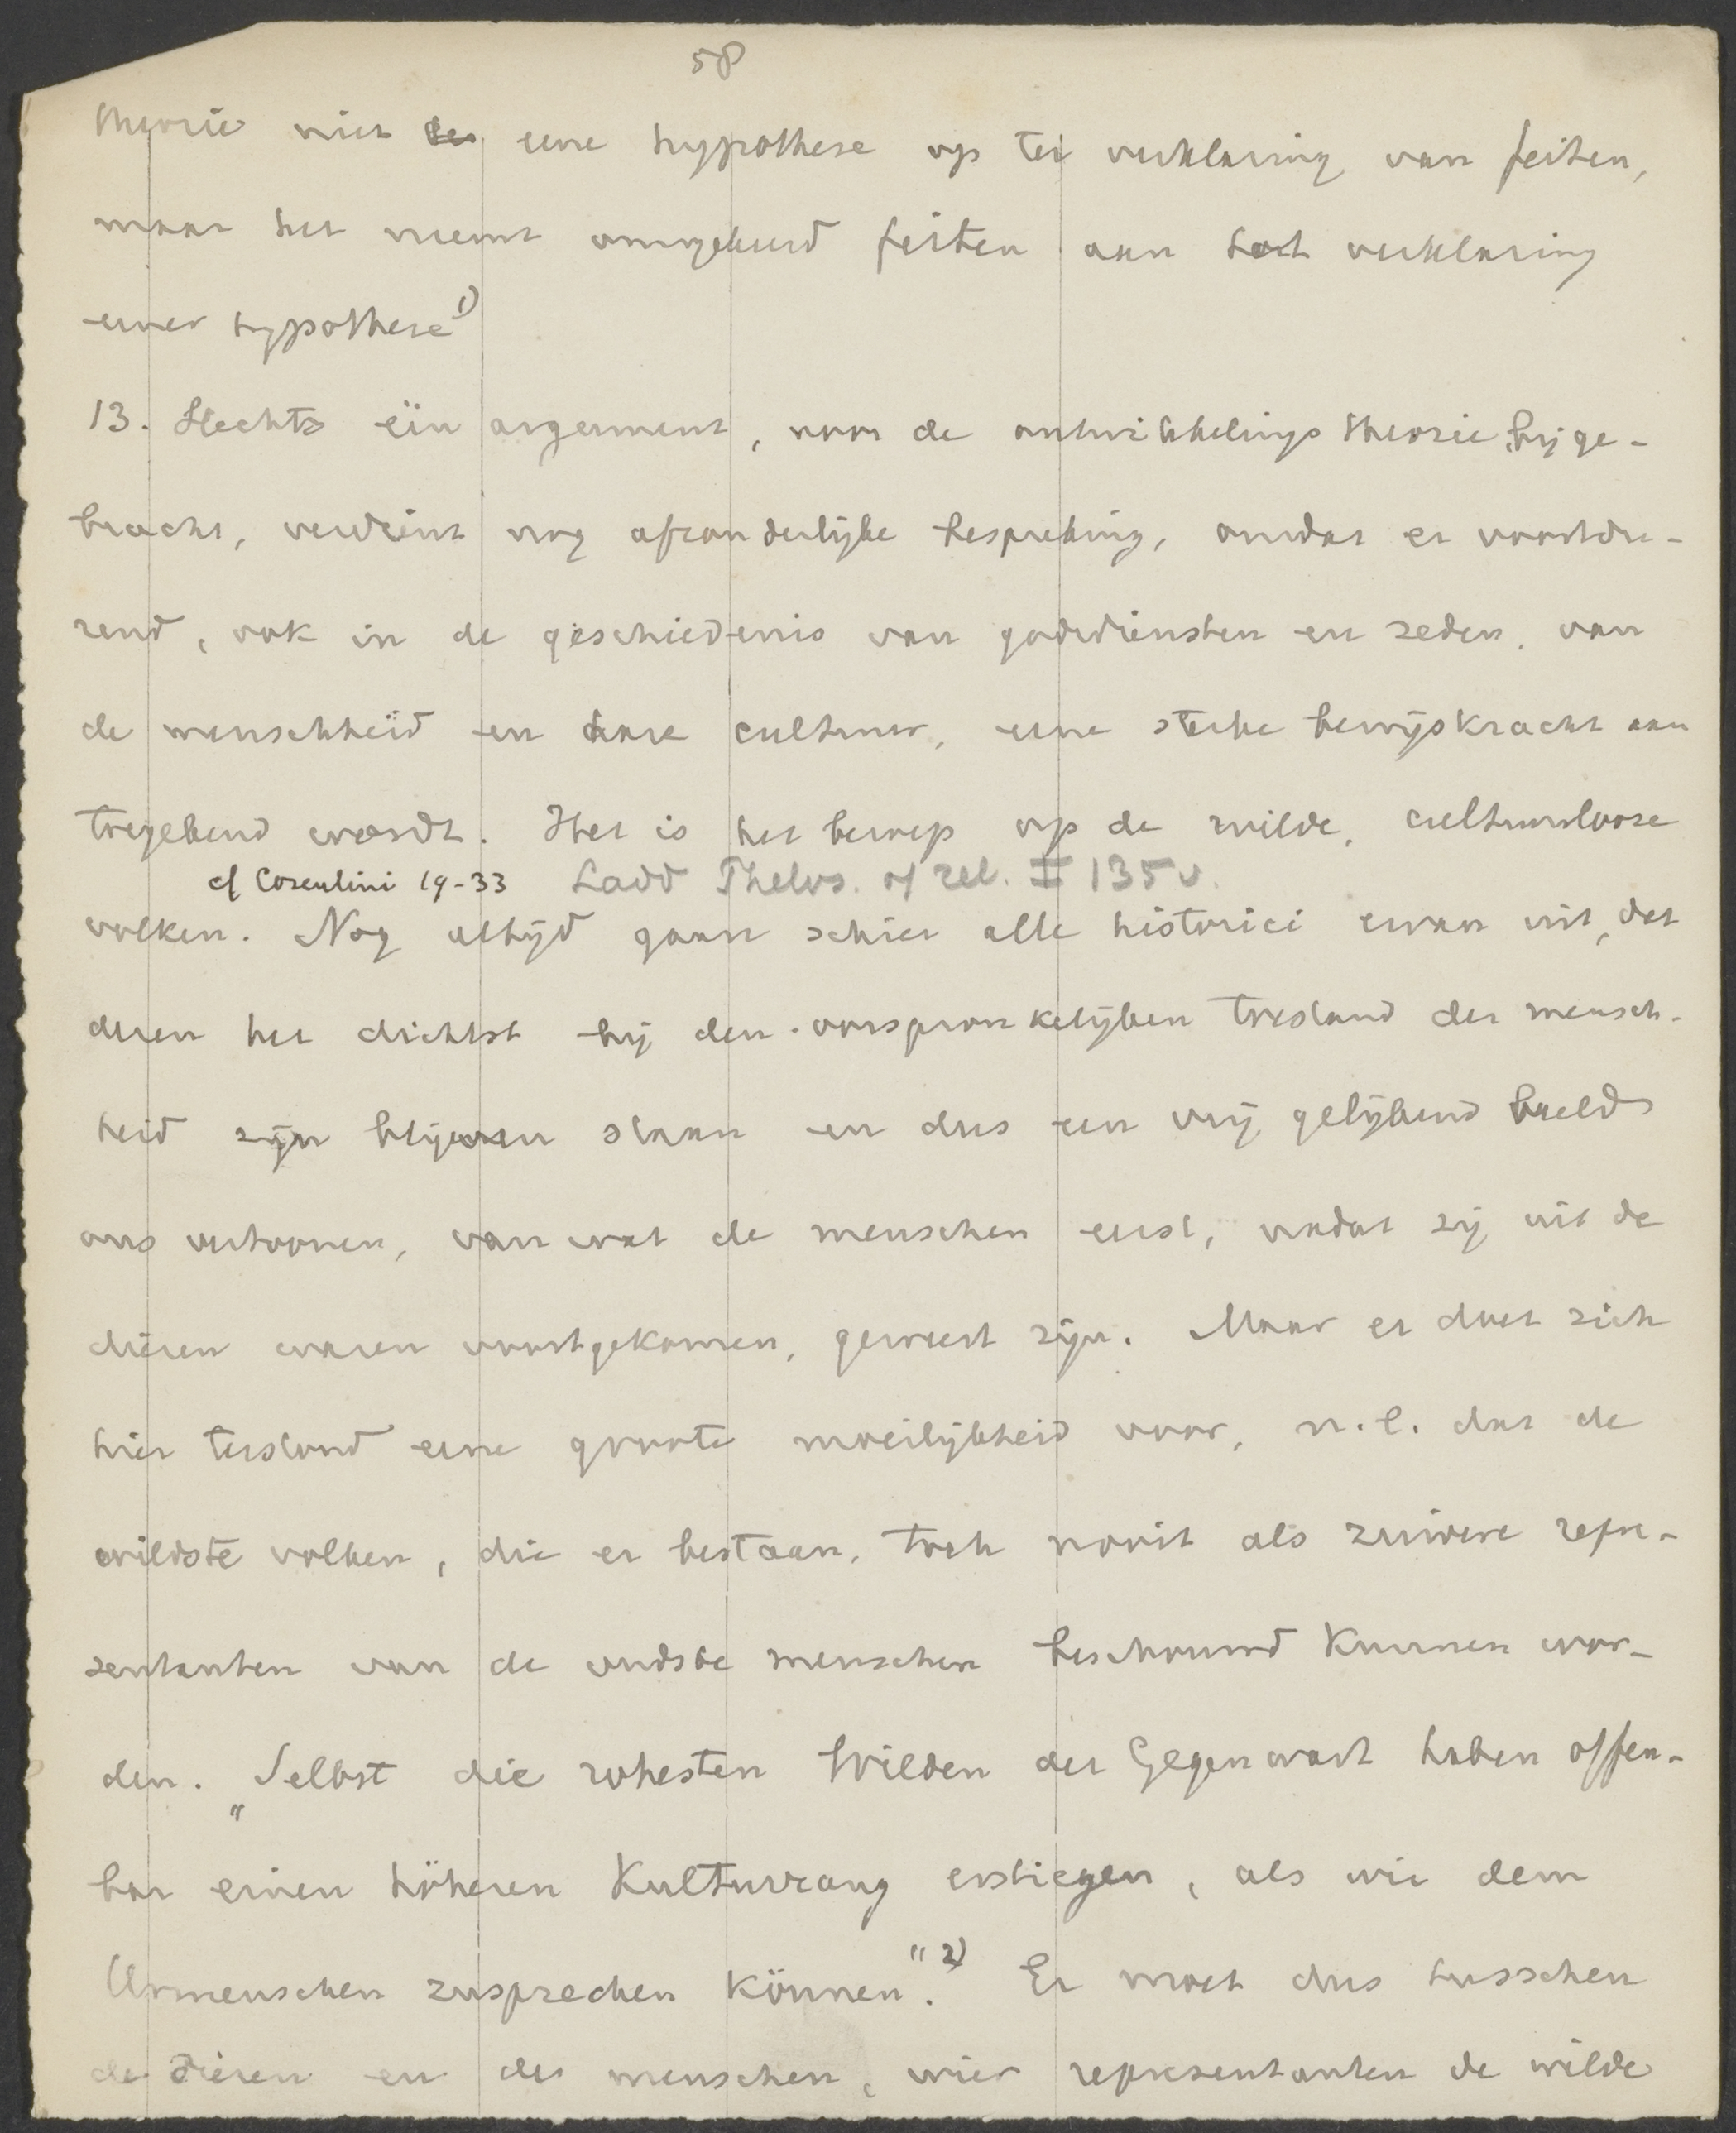 58
theorie niet eene hypothese op ter verklaring van feiten,
maar het neemt omgekeerd feiten aan tot verklaring
eener hypothese 1)
13. Slechts één argument, voor de ontwikkelingstheorie bijge-
bracht, verdient nog afzonderlijke bespreking, omdat er voortdu-
rend, ook in de geschiedenis van godsdiensten en zeden, van
de menschheid en hare cultuur, eene sterke bewijskracht aan
toegekend wordt. Het is het beroep op de wilde, cultuurlooze
cf Coscutini 19-33 Ladd Philos. of rel. I 135 v.
volken. Nog altijd gaan schier alle historici ervan uit, dat
dezen het dichtst bij den oorspronkelijken toestand der mensch-
heid zijn blijven staan en dus een vrij gelijkend beeld
ons vertoonen, van wat de menschen eerst, nadat zij uit de
dieren waren voortgekomen, geweest zijn. Maar er doet zich
hier terstond eene groote moeilijkheid voor, n.l. dat de
wildste volken, die er bestaan, toch nooit als zuivere repre-
sentanten van de oudste menschen beschouwd kunnen wor-
den. „Selbst die rohesten Wilden der Gegenwart haben offen-
bar einen höheren Kulturrang erstiegen, als wir dem
Urmenschen zusprechen können". 2) Er moet dus tusschen
de dieren en de menschen, wier representanten de wilde